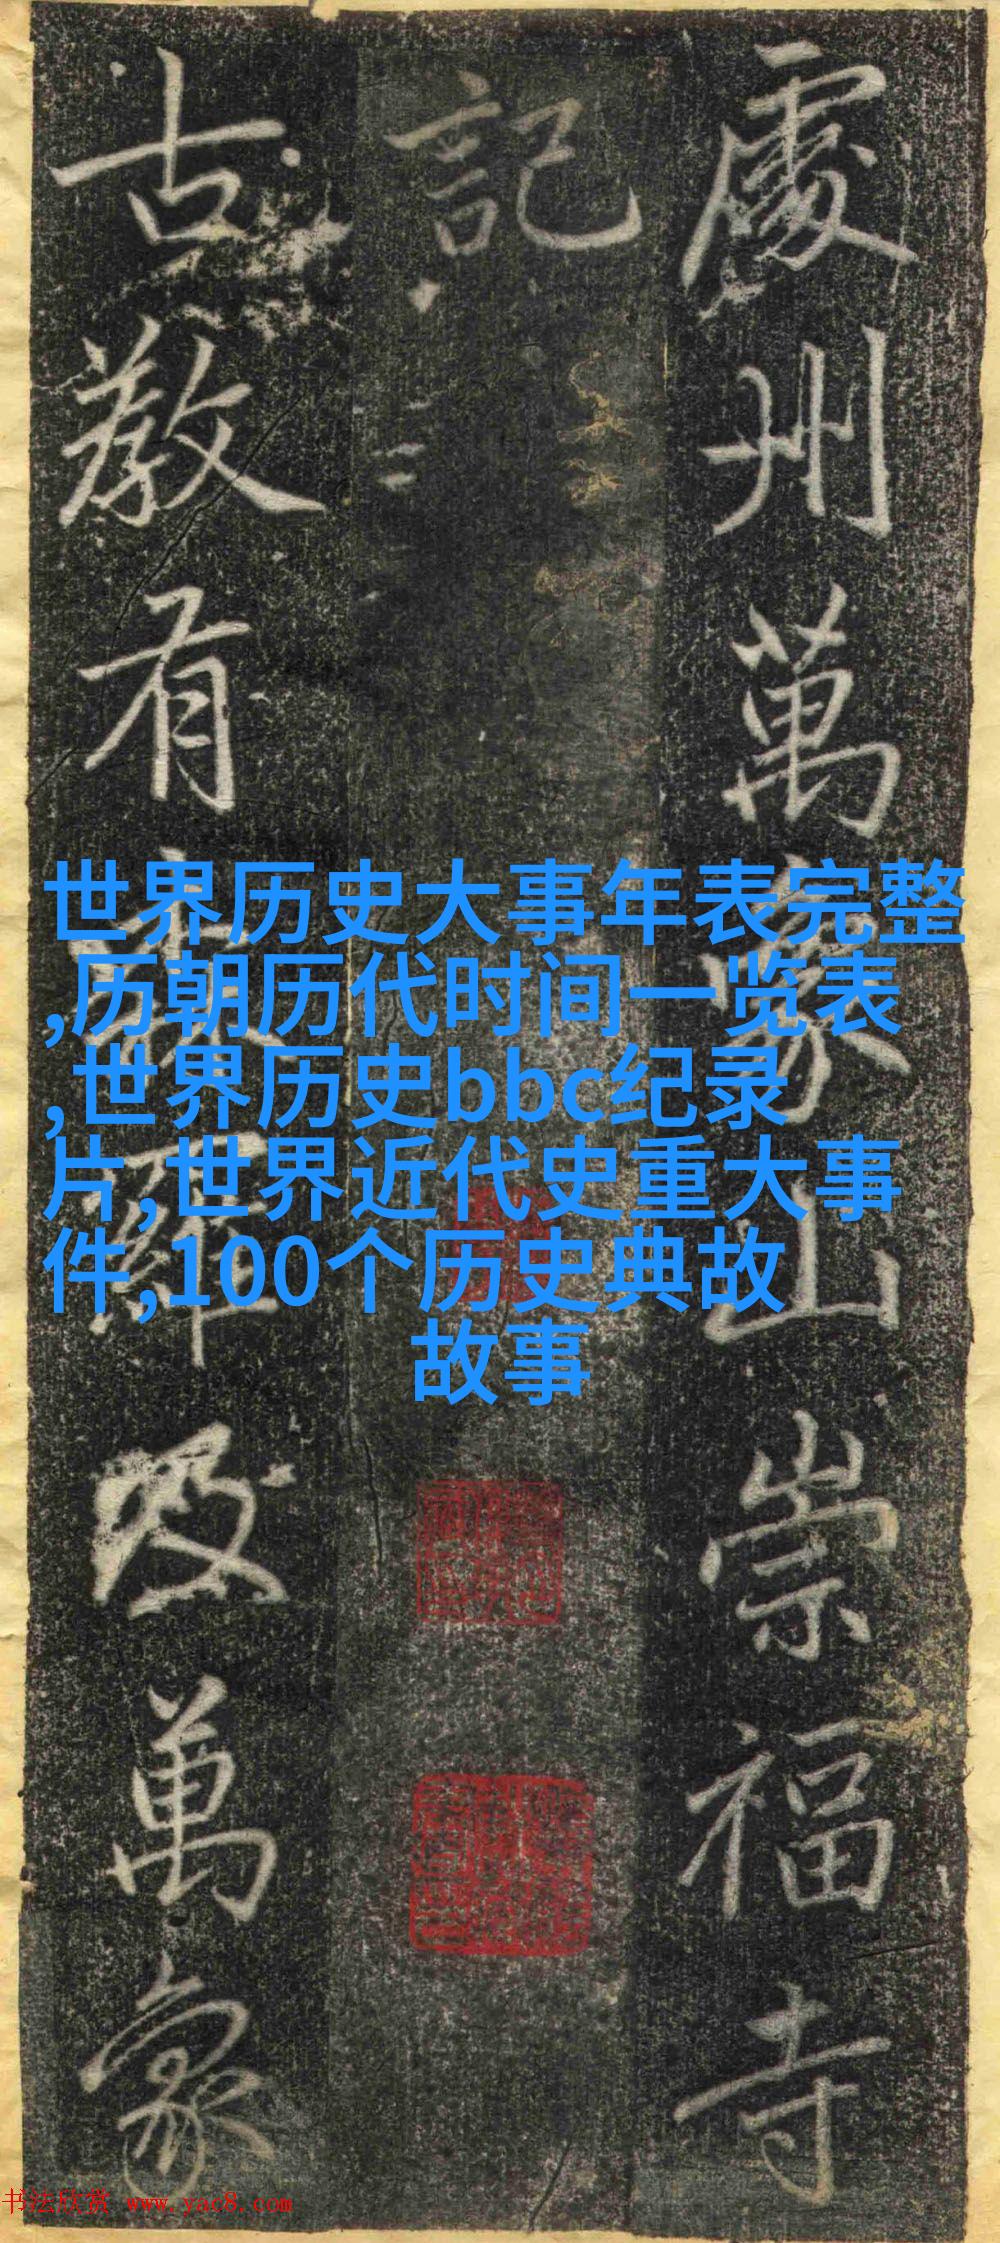 處州萬象山崇福寺
記
古教有森羅及萬象
世界历史大事年表完整
,历朝历代时间一览表
,世界历史bbc纪录
片,世界近代史重大事
件,100个历史典故
故事
书法欣赏 www.yac8.com